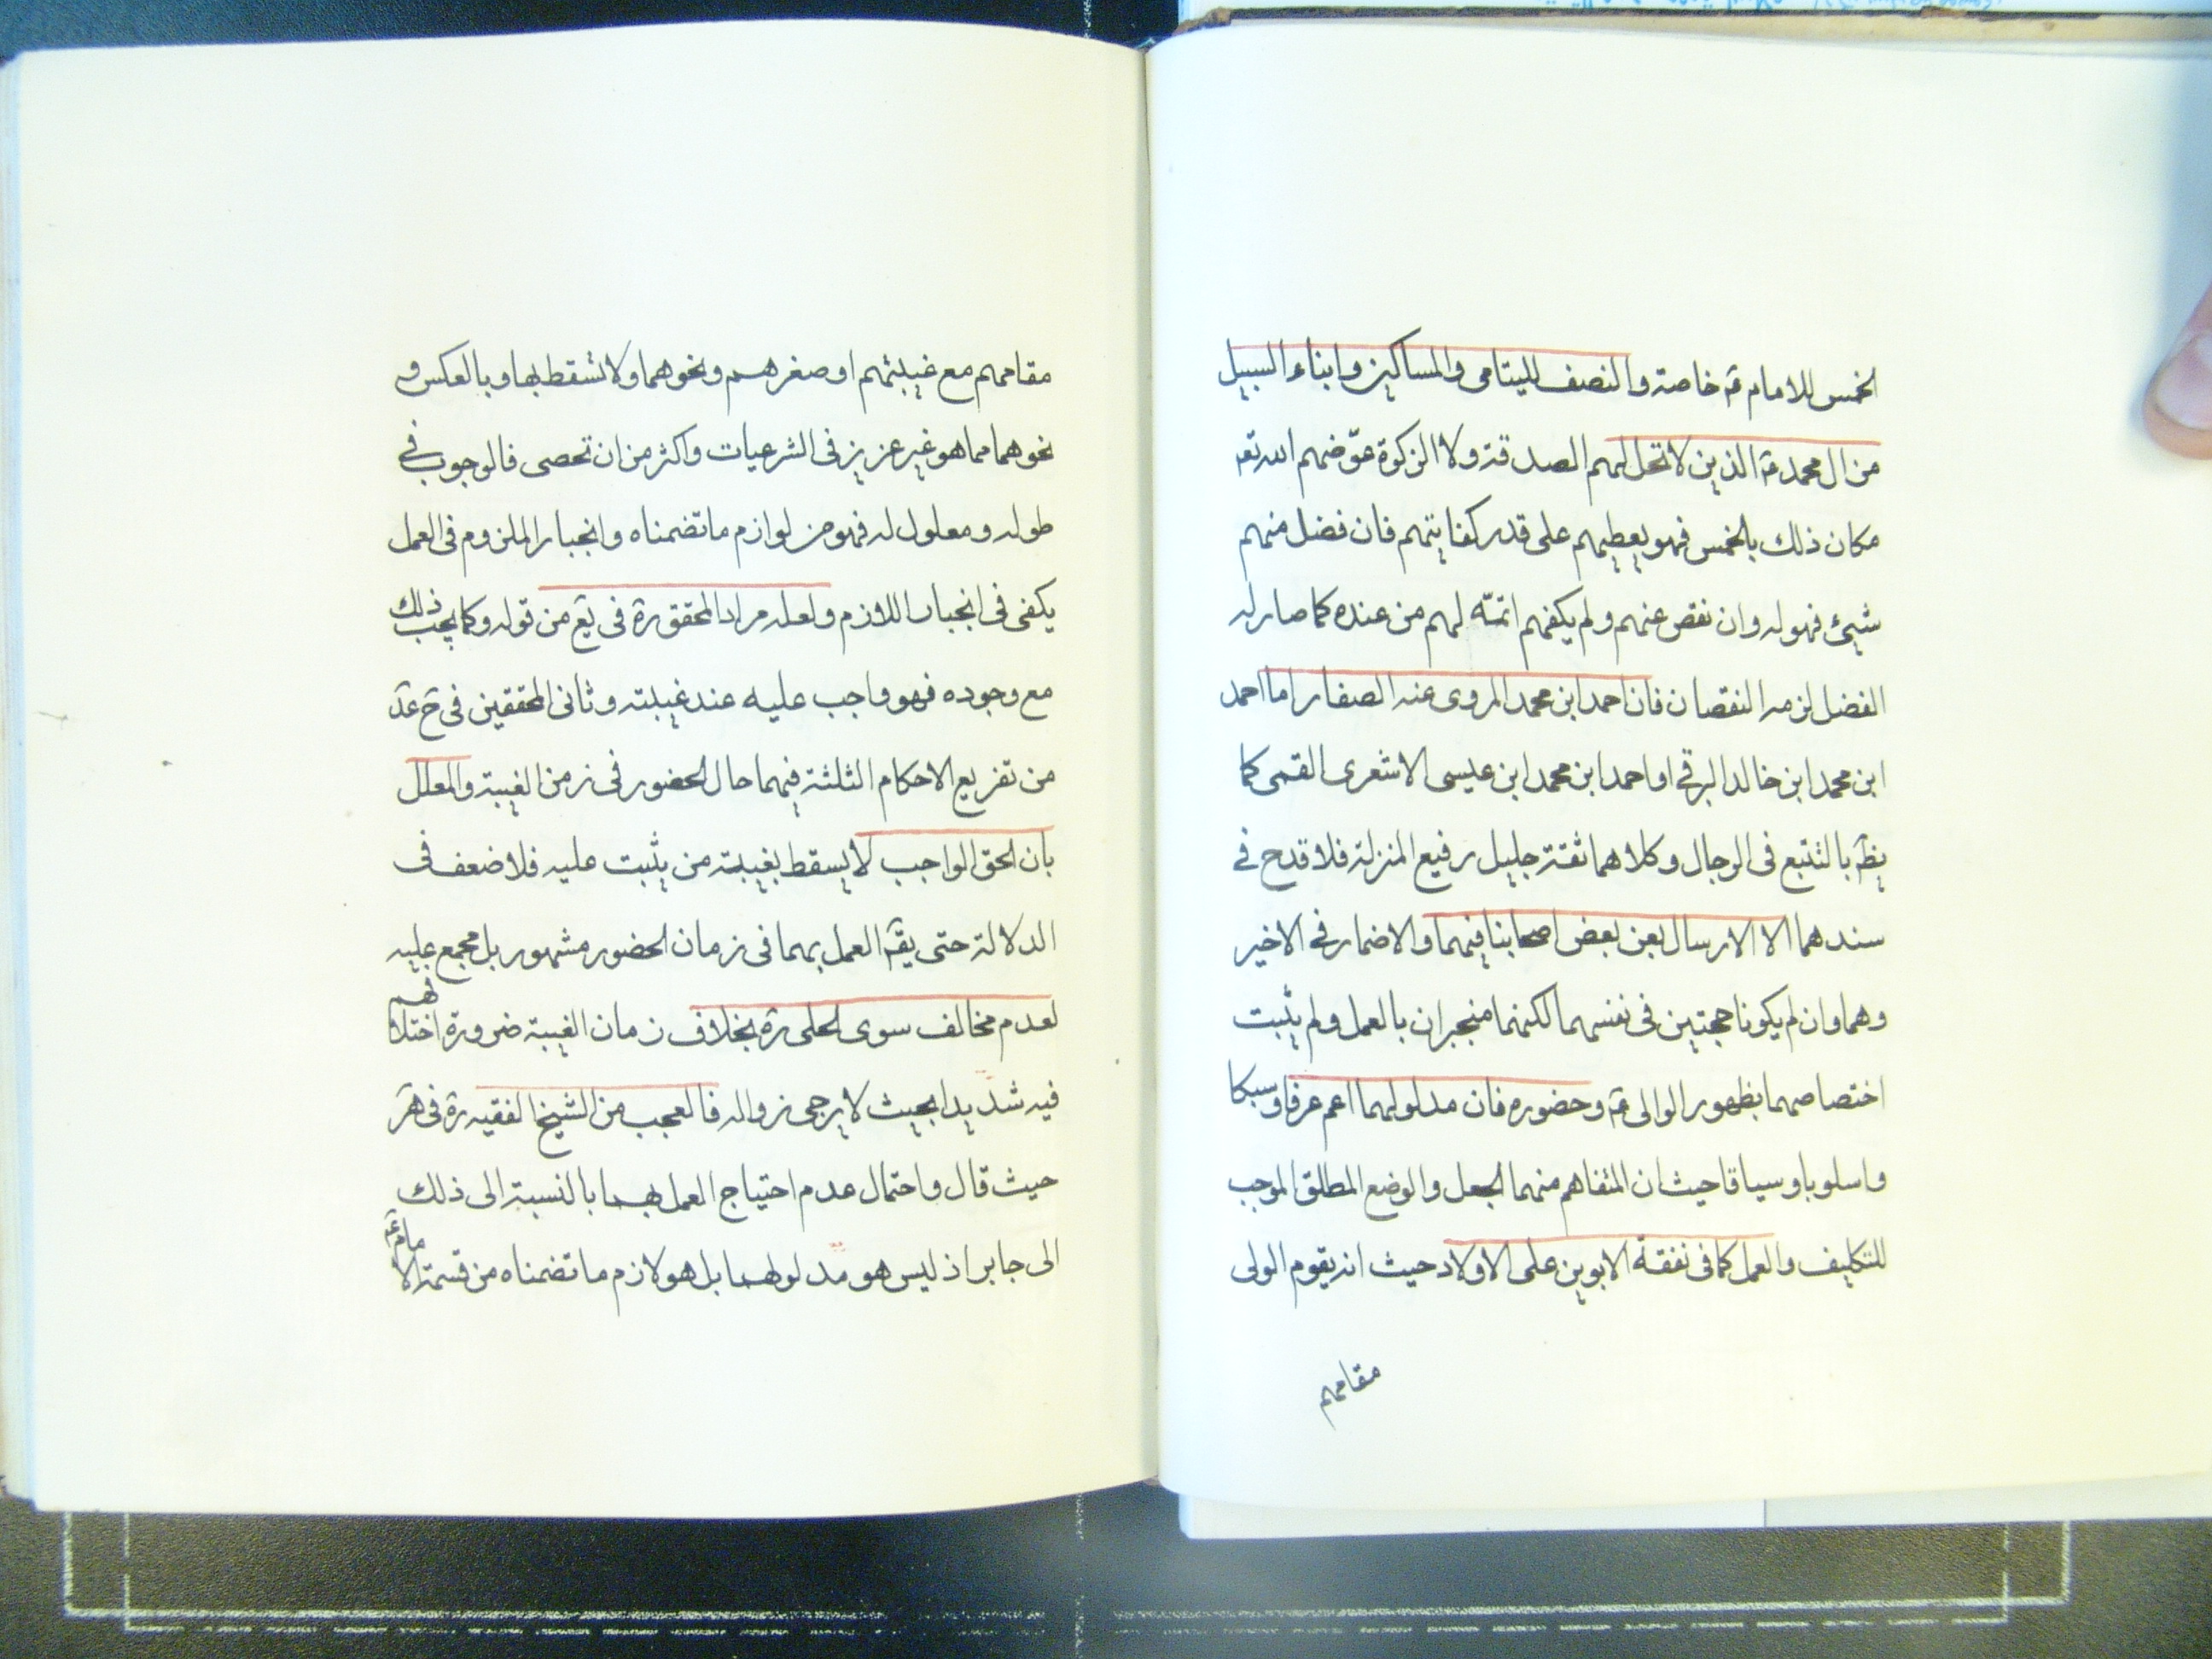 الخمس للامام ع خاصة والنصف لليتامى والمساكين وابناء السبيل
من ال محمد ع الذين لا تحل لهم الصدقة ولا الزكوة عوّضهم الله تع
مكان ذلك بالخمس فهو يعطيهم على قدر كفايتهم فان فضل منهم
شيئ فهو له وان نقص عنهم ولم يكفهم اتمّه لهم من عنده كما صار له
الفضل لزمه النقصان فان احمد ابن محمد المروى عنه الصفار اما احمد
ابن محمد ابن خالد البرقي او احمد ابن محمد ابن عيسى الاشعرى القمى كما
يظ بالتتبع فى الرجال وكلاهما ثقة جليل رفيع المنزلة فلا قدح في
سندهما الا الارسال بعن بعض اصحابنا فيهما والاضمار في الاخير
وهما وان لم يكونا حجتين فى نفسهما لكنهما منجبران بالعمل ولم يثبت
اختصاصهما بظهور الوالى ع وحضوره فان مدلولهما اعم عرفا وسبكا
واسلوبا وسياقا حيث ان المتفاهم منهما الجعل والوضع المطلق الموجب
للتكليف والعمل كما فى نفقة الابوين على الاولاد حيث انه يقوم الولى
مقامهم
مقامهم مع غيبتهم او صغرهم ونحوهما ولا تسقط بها وبالعكس و
نحوهما مما هو غير عزيز فى الشرعيات واكثر من ان تحصى فالوجوب في
طوله ومعلول له فهو من لوازم ما تضمناه وانجبار الملزوم فى العمل
يكفى فى انجبار اللازم ولعله مراد المحقق ره فى يع من قوله وكما يجب ذلك
مع وجوده فهو واجب عليه عند غيبته وثانى المحققين فى ح عد
من تفريع الاحكام الثلثة فيهما حال الحضور فى زمن الغيبة والمعلل
بان الحق الواجب لا يسقط بغيبة من يثبت عليه فلا ضعف فى
الدلالة حتى يق العمل بهما فى زمان الحضور مشهور بل مجمع عليه
لعدم مخالف سوى الحلى ره بخلاف زمان الغيبة ضرورة اختلافهم
فيه شديدا بحيث لا يرجى زواله فالعجب من الشيخ الفقيه ره فى هر
حيث قال واحتمال عدم احتياج العمل بهما بالنسبة الى ذلك
الى جابر اذ ليس هو مدلولهما بل هو لازم ما تضمناه من قسمة الامام ع